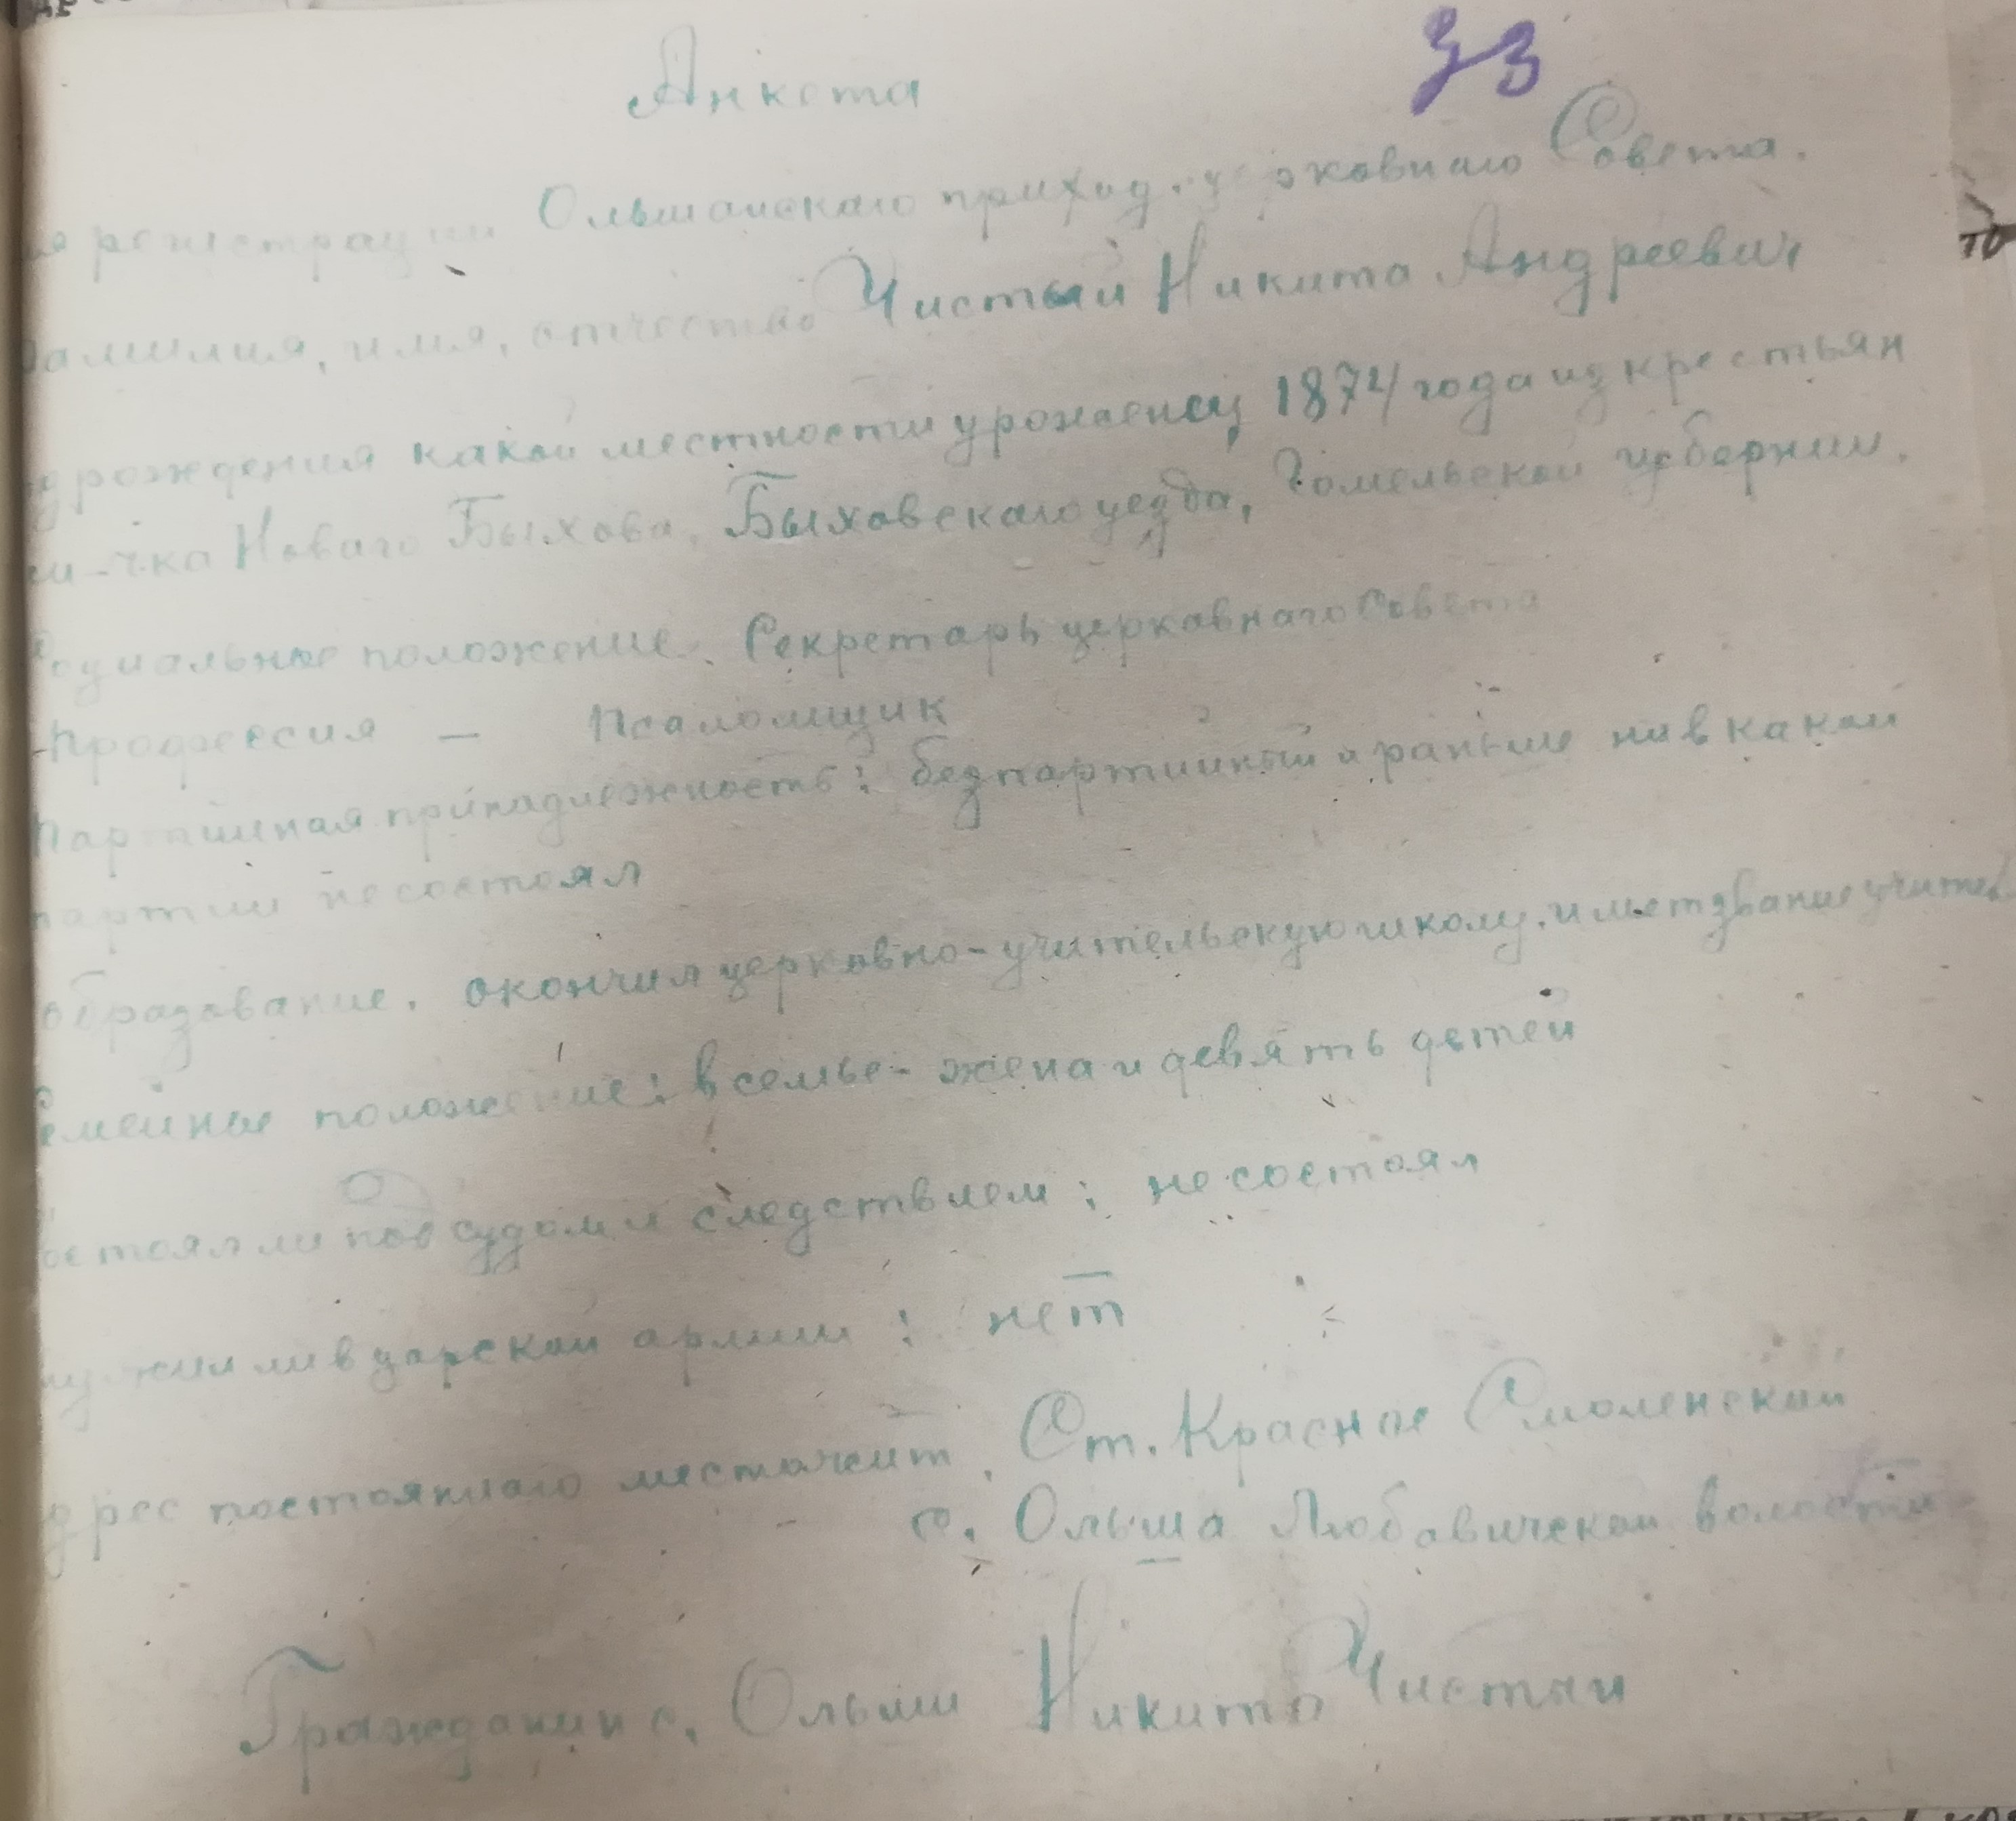 33
Анкета
регистрации Ольшанскаго приход. Совета.
амилия, имя, отчество Чистый Никита Андреевич
д рождения какой местности уроженец 1874 года из крестьян
м-чка Новаго Быхова, Быховскаго уезда, Гомельской губернии.
Социальное положение. Секретарь церкавнаго Совета
Профессия — Псаломщик
Партийная принадлежность: безпартийный и раньше ни в какой
партии не состоял
образование. окончил церковно-учительскую школу. имеет звание учител
Семейное положение: в семье - жена и девять детей
остоял ли под судом и следствием: не состоял
ужил ли в царской армии: нет
дрес постояннаго местожит. Ст. Красное Смоленской
с. Ольша Любавичской волости
Гражданин с. Ольши Никита Чистый